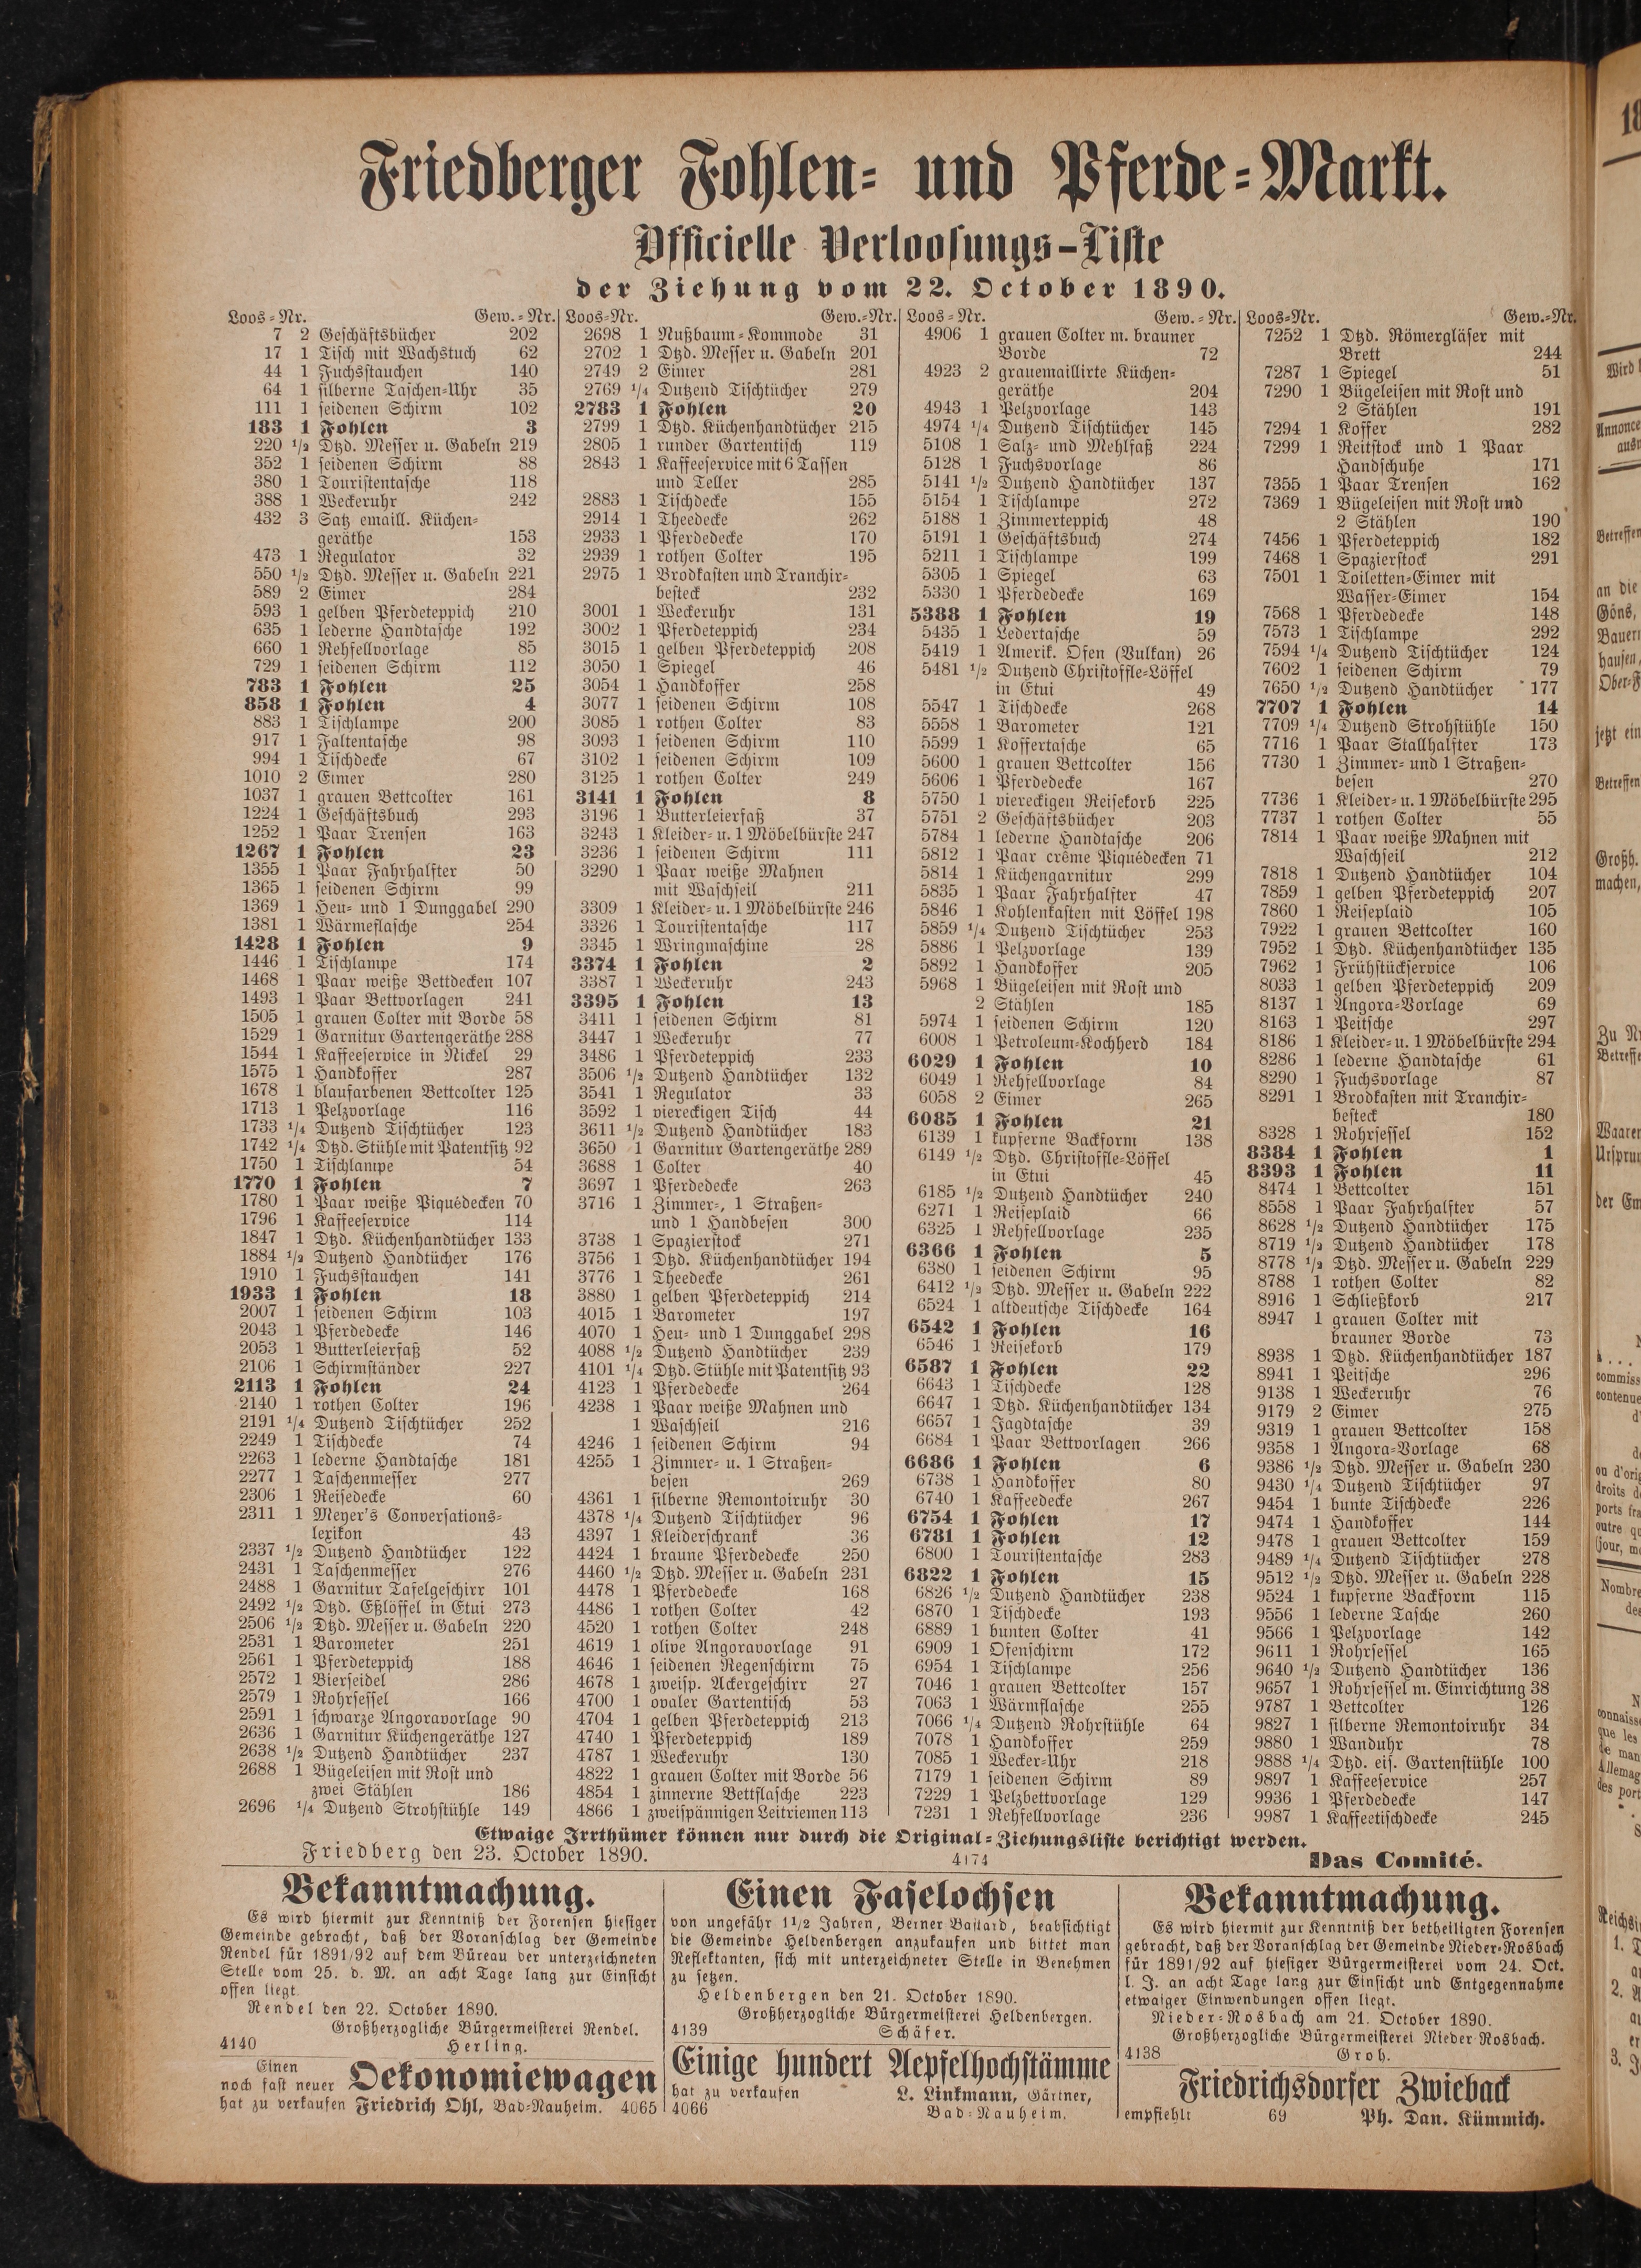 Friedberger Fohlen- und Pferde-Markt.
Officielle Verloosungs-Liste
der Ziehung vom 22. October 1890.
Loos-Nr. Gew.-Nr.
7 2 Geschäftsbücher 202
17 1 Tisch mit Wachstuch 62
44 1 Fuchsstauchen 140
64 1 silberne Taschen-Uhr 35
111 1 seidenen Schirm 102
183 1 Fohlen 3
220 1/2 Dtzd. Messer u. Gabeln 219
352 1 seidenen Schirm 88
380 1 Touristentasche 118
388 1 Weckeruhr 242
432 3 Satz emaill. Küchen-
geräthe 153
473 1 Regulator 32
550 1/2 Dtzd. Messer u. Gabeln 221
589 2 Eimer 284
593 1 gelben Pferdeteppich 210
635 1 lederne Handtasche 192
660 1 Rehfellvorlage 85
729 1 seidenen Schirm 112
783 1 Fohlen 25
858 1 Fohlen 4
883 1 Tischlampe 200
917 1 Faltentasche 98
994 1 Tischdecke 67
1010 2 Eimer 280
1037 1 grauen Bettcolter 161
1224 1 Geschäftsbuch 293
1252 1 Paar Trensen 163
1267 1 Fohlen 23
1355 1 Paar Fahrhalfter 50
1365 1 seidenen Schirm 99
1369 1 Heu- und 1 Dunggabel 290
1381 1 Wärmeflasche 254
1428 1 Fohlen 9
1446 1 Tischlampe 174
1468 1 Paar weiße Bettdecken 107
1493 1 Paar Bettvorlagen 241
1505 1 grauen Colter mit Borde 58
1529 1 Garnitur Gartengeräthe 288
1544 1 Kaffeeservice in Nickel 29
1575 1 Handkoffer 287
1678 1 blaufarbenen Bettcolter 125
1713 1 Pelzvorlage 116
1733 1/4 Dutzend Tischtücher 123
1742 1/4 Dtzd. Stühle mit Patentsitz 92
1750 1 Tischlampe 54
1770 1 Fohlen 7
1780 1 Paar weiße Piquédecken 70
1796 1 Kaffeeservice 114
1847 1 Dtzd. Küchenhandtücher 133
1884 1/2 Dutzend Handtücher 176
1910 1 Fuchsstauchen 141
1933 1 Fohlen 18
2007 1 seidenen Schirm 103
2043 1 Pferdedecke 146
2053 1 Butterleierfaß 52
2106 1 Schirmständer 227
2113 1 Fohlen 24
2140 1 rothen Colter 196
2191 1/4 Dutzend Tischtücher 252
2249 1 Tischdecke 74
2263 1 lederne Handtasche 181
2277 1 Taschenmesser 277
2306 1 Reisedecke 60
2311 1 Meyer's Conversations-
lexikon 43
2337 1/2 Dutzend Handtücher 122
2431 1 Taschenmesser 276
2488 1 Garnitur Tafelgeschirr 101
2492 1/2 Dtzd. Eßlöffel in Etui 273
2506 1/2 Dtzd. Messer u. Gabeln 220
2531 1 Barometer 251
2561 1 Pferdeteppich 188
2572 1 Bierseidel 286
2579 1 Rohrsessel 166
2591 1 schwarze Angoravorlage 90
2636 1 Garnitur Küchengeräthe 127
2638 1/2 Dutzend Handtücher 237
2688 1 Bügeleisen mit Rost und
zwei Stählen 186
2696 1/4 Dutzend Strohstühle 149
Loos-Nr. Gew.-Nr.
2698 1 Nußbaum-Kommode 31
2702 1 Dtzd. Messer u. Gabeln 201
2749 2 Eimer 281
2769 1/4 Dutzend Tischtücher 279
2783 1 Fohlen 20
2799 1 Dtzd. Küchenhandtücher 215
2805 1 runder Gartentisch 119
2843 1 Kaffeeservice mit 6 Tassen
und Teller 285
2883 1 Tischdecke 155
2914 1 Theedecke 262
2933 1 Pferdedecke 170
2939 1 rothen Colter 195
2975 1 Brodkasten und Tranchir-
besteck 232
3001 1 Weckeruhr 131
3002 1 Pferdeteppich 234
3015 1 gelben Pferdeteppich 208
3050 1 Spiegel 46
3054 1 Handkoffer 258
3077 1 seidenen Schirm 108
3085 1 rothen Colter 83
3093 1 seidenen Schirm 110
3102 1 seidenen Schirm 109
3125 1 rothen Colter 249
3141 1 Fohlen 8
3196 1 Butterleierfaß 37
3243 1 Kleider- u. 1 Möbelbürste 247
3236 1 seidenen Schirm 111
3290 1 Paar weiße Mahnen
mit Waschseil 211
3309 1 Kleider- u. 1 Möbelbürste 246
3326 1 Touristentasche 117
3345 1 Wringmaschine 28
3374 1 Fohlen 2
3387 1 Weckeruhr 243
3395 1 Fohlen 13
3411 1 seidenen Schirm 81
3447 1 Weckeruhr 77
3486 1 Pferdeteppich 233
3506 1/2 Dutzend Handtücher 132
3541 1 Regulator 33
3592 1 viereckigen Tisch 44
3611 1/2 Dutzend Handtücher 183
3650 1 Garnitur Gartengeräthe 289
3688 1 Colter 40
3697 1 Pferdedecke 263
3716 1 Zimmer-, 1 Straßen-
und 1 Handbesen 300
3738 1 Spazierstock 271
3756 1 Dtzd. Küchenhandtücher 194
3776 1 Theedecke 261
3880 1 gelben Pferdeteppich 214
4015 1 Barometer 197
4070 1 Heu- und 1 Dunggabel 298
4088 1/2 Dutzend Handtücher 239
4101 1/4 Dtzd. Stühle mit Patentsitz 93
4123 1 Pferdedecke 264
4238 1 Paar weiße Mahnen und
1 Waschseil 216
4246 1 seidenen Schirm 94
4255 1 Zimmer- u. 1 Straßen-
besen 269
4361 1 silberne Remontoiruhr 30
4378 1/4 Dutzend Tischtücher 96
4397 1 Kleiderschrank 36
4424 1 braune Pferdedecke 250
4460 1/2 Dtzd. Messer u. Gabeln 231
4478 1 Pferdedecke 168
4486 1 rothen Colter 42
4520 1 rothen Colter 248
4619 1 olive Angoravorlage 91
4646 1 seidenen Regenschirm 75
4678 1 zweisp. Ackergeschirr 27
4700 1 ovaler Gartentisch 53
4704 1 gelben Pferdeteppich 213
4740 1 Pferdeteppich 189
4787 1 Weckeruhr 130
4822 1 grauen Colter mit Borde 56
4854 1 zinnerne Bettflasche 223
4866 1 zweispännigen Leitriemen 113
Loos-Nr. Gew.-Nr.
4906 1 grauen Colter m. brauner
Borde 72
4923 2 grauemaillirte Küchen-
geräthe 204
4943 1 Pelzvorlage 143
4974 1/4 Dutzend Tischtücher 145
5108 1 Salz- und Mehlfaß 224
5128 1 Fuchsvorlage 86
5141 1/2 Dutzend Handtücher 137
5154 1 Tischlampe 272
5188 1 Zimmerteppich 48
5191 1 Geschäftsbuch 274
5211 1 Tischlampe 199
5305 1 Spiegel 63
5330 1 Pferdedecke 169
5388 1 Fohlen 19
5435 1 Ledertasche 59
5419 1 Amerik. Ofen (Vulkan) 26
5481 1/2 Dutzend Christoffle-Löffel
in Etui 49
5547 1 Tischdecke 268
5558 1 Barometer 121
5599 1 Koffertasche 65
5600 1 grauen Bettcolter 156
5606 1 Pferdedecke 167
5750 1 viereckigen Reisekorb 225
5751 2 Geschäftsbücher 203
5784 1 lederne Handtasche 206
5812 1 Paar crême Piquédecken 71
5814 1 Küchengarnitur 299
5835 1 Paar Fahrhalfter 47
5846 1 Kohlenkasten mit Löffel 198
5859 1/4 Dutzend Tischtücher 253
5886 1 Pelzvorlage 139
5892 1 Handkoffer 205
5968 1 Bügeleisen mit Rost und
2 Stählen 185
5974 1 seidenen Schirm 120
6008 1 Petroleum-Kochherd 184
6029 1 Fohlen 10
6049 1 Rehfellvorlage 84
6058 2 Eimer 265
6085 1 Fohlen 21
6139 1 kupferne Backform 138
6149 1/2 Dtzd. Christoffle-Löffel
in Etui 45
6185 1/2 Dutzend Handtücher 240
6271 1 Reiseplaid 66
6325 1 Rehfellvorlage 235
6366 1 Fohlen 5
6380 1 seidenen Schirm 95
6412 1/2 Dtzd. Messer u. Gabeln 222
6524 1 altdeutsche Tischdecke 164
6542 1 Fohlen 16
6546 1 Reisekorb 179
6587 1 Fohlen 22
6643 1 Tischdecke 128
6647 1 Dtzd. Küchenhandtücher 134
6657 1 Jagdtasche 39
6684 1 Paar Bettvorlagen 266
6686 1 Fohlen 6
6738 1 Handkoffer 80
6740 1 Kaffeedecke 267
6754 1 Fohlen 17
6781 1 Fohlen 12
6800 1 Touristentasche 283
6822 1 Fohlen 15
6826 1/2 Dutzend Handtücher 238
6870 1 Tischdecke 193
6889 1 bunten Colter 41
6909 1 Ofenschirm 172
6954 1 Tischlampe 256
7046 1 grauen Bettcolter 157
7063 1 Wärmflasche 255
7066 1/4 Dutzend Rohrstühle 64
7078 1 Handkoffer 259
7085 1 Wecker-Uhr 218
7179 1 seidenen Schirm 89
7229 1 Pelzbettvorlage 129
7231 1 Rehfellvorlage 236
Loos-Nr. Gew.-Nr.
7252 1 Dtzd. Römergläser mit
Brett 244
7287 1 Spiegel 51
7290 1 Bügeleisen mit Rost und
2 Stählen 191
7294 1 Koffer 282
7299 1 Reitstock und 1 Paar
Handschuhe 171
7355 1 Paar Trensen 162
7369 1 Bügeleisen mit Rost und
2 Stählen 190
7456 1 Pferdeteppich 182
7468 1 Spazierstock 291
7501 1 Toiletten-Eimer mit
Wasser-Eimer 154
7568 1 Pferdedecke 148
7573 1 Tischlampe 292
7594 1/4 Dutzend Tischtücher 124
7602 1 seidenen Schirm 79
7650 1/2 Dutzend Handtücher 177
7707 1 Fohlen 14
7709 1/4 Dutzend Strohstühle 150
7716 1 Paar Stallhalfter 173
7730 1 Zimmer- und 1 Straßen-
besen 270
7736 1 Kleider- u. 1 Möbelbürste 295
7737 1 rothen Colter 55
7814 1 Paar weiße Mahnen mit
Waschseil 212
7818 1 Dutzend Handtücher 104
7859 1 gelben Pferdeteppich 207
7860 1 Reiseplaid 105
7922 1 grauen Bettcolter 160
7952 1 Dtzd. Küchenhandtücher 135
7962 1 Frühstückservice 106
8033 1 gelben Pferdeteppich 209
8137 1 Angora-Vorlage 69
8163 1 Peitsche 297
8186 1 Kleider- u. 1 Möbelbürste 294
8286 1 lederne Handtasche 61
8290 1 Fuchsvorlage 87
8291 1 Brodkasten mit Tranchir-
besteck 180
8328 1 Rohrsessel 152
8384 1 Fohlen 1
8393 1 Fohlen 11
8474 1 Bettcolter 151
8558 1 Paar Fahrhalfter 57
8628 1/2 Dutzend Handtücher 175
8719 1/2 Dutzend Handtücher 178
8778 1/2 Dtzd. Messer u. Gabeln 229
8788 1 rothen Colter 82
8916 1 Schließkorb 217
8947 1 grauen Colter mit
brauner Borde 73
8938 1 Dtzd. Küchenhandtücher 187
8941 1 Peitsche 296
9138 1 Weckeruhr 76
9179 2 Eimer 275
9319 1 grauen Bettcolter 158
9358 1 Angora-Vorlage 68
9386 1/2 Dtzd. Messer u. Gabeln 230
9430 1/4 Dutzend Tischtücher 97
9454 1 bunte Tischdecke 226
9474 1 Handkoffer 144
9478 1 grauen Bettcolter 159
9489 1/4 Dutzend Tischtücher 278
9512 1/2 Dtzd. Messer u. Gabeln 228
9524 1 kupferne Backform 115
9556 1 lederne Tasche 260
9566 1 Pelzvorlage 142
9611 1 Rohrsessel 165
9640 1/2 Dutzend Handtücher 136
9657 1 Rohrsessel m. Einrichtung 38
9787 1 Bettcolter 126
9827 1 silberne Remontoiruhr 34
9880 1 Wanduhr 78
9888 1/4 Dtzd. eis. Gartenstühle 100
9897 1 Kaffeeservice 257
9936 1 Pferdedecke 147
9987 1 Kaffeetischdecke 245
Etwaige Irrthümer können nur durch die Original-Ziehungsliste berichtigt werden.
Friedberg den 23. October 1890. 4174 Das Comité.
Bekanntmachung.
Es wird hiermit zur Kenntniß der Forensen hiesiger
Gemeinde gebracht, daß der Voranschlag der Gemeinde
Rendel für 1891/92 auf dem Büreau der unterzeichneten
Stelle vom 25. d. M. an acht Tage lang zur Einsicht
offen liegt.
Rendel den 22. October 1890.
Großherzogliche Bürgermeisterei Rendel.
4140 Herling.
Einen
noch fast neuer Oekonomiewagen
hat zu verkaufen Friedrich Ohl, Bad-Nauheim. 4065
Einen Faselochsen
von ungefähr 1 1/2 Jahren, Berner Bastard, beabsichtigt
die Gemeinde Heldenbergen anzukaufen und bittet man
Reflektanten, sich mit unterzeichneter Stelle in Benehmen
zu setzen.
Heldenbergen den 21. October 1890.
Großherzogliche Bürgermeisterei Heldenbergen.
4139 Schäfer.
Einige hundert Aepfelhochstämme
hat zu verkaufen L. Linkmann, Gärtner,
4066 Bad-Nauheim.
Bekanntmachung.
Es wird hiermit zur Kenntniß der betheiligten Forensen
gebracht, daß der Voranschlag der Gemeinde Nieder-Rosbach
für 1891/92 auf hiesiger Bürgermeisterei vom 24. Oct.
l. J. an acht Tage lang zur Einsicht und Entgegennahme
etwaiger Einwendungen offen liegt.
Nieder-Rosbach am 21. October 1890.
Großherzogliche Bürgermeisterei Nieder-Rosbach.
4138 Groh.
Friedrichsdorfer Zwieback
empfiehlt 69 Ph. Dan. Kümmich.